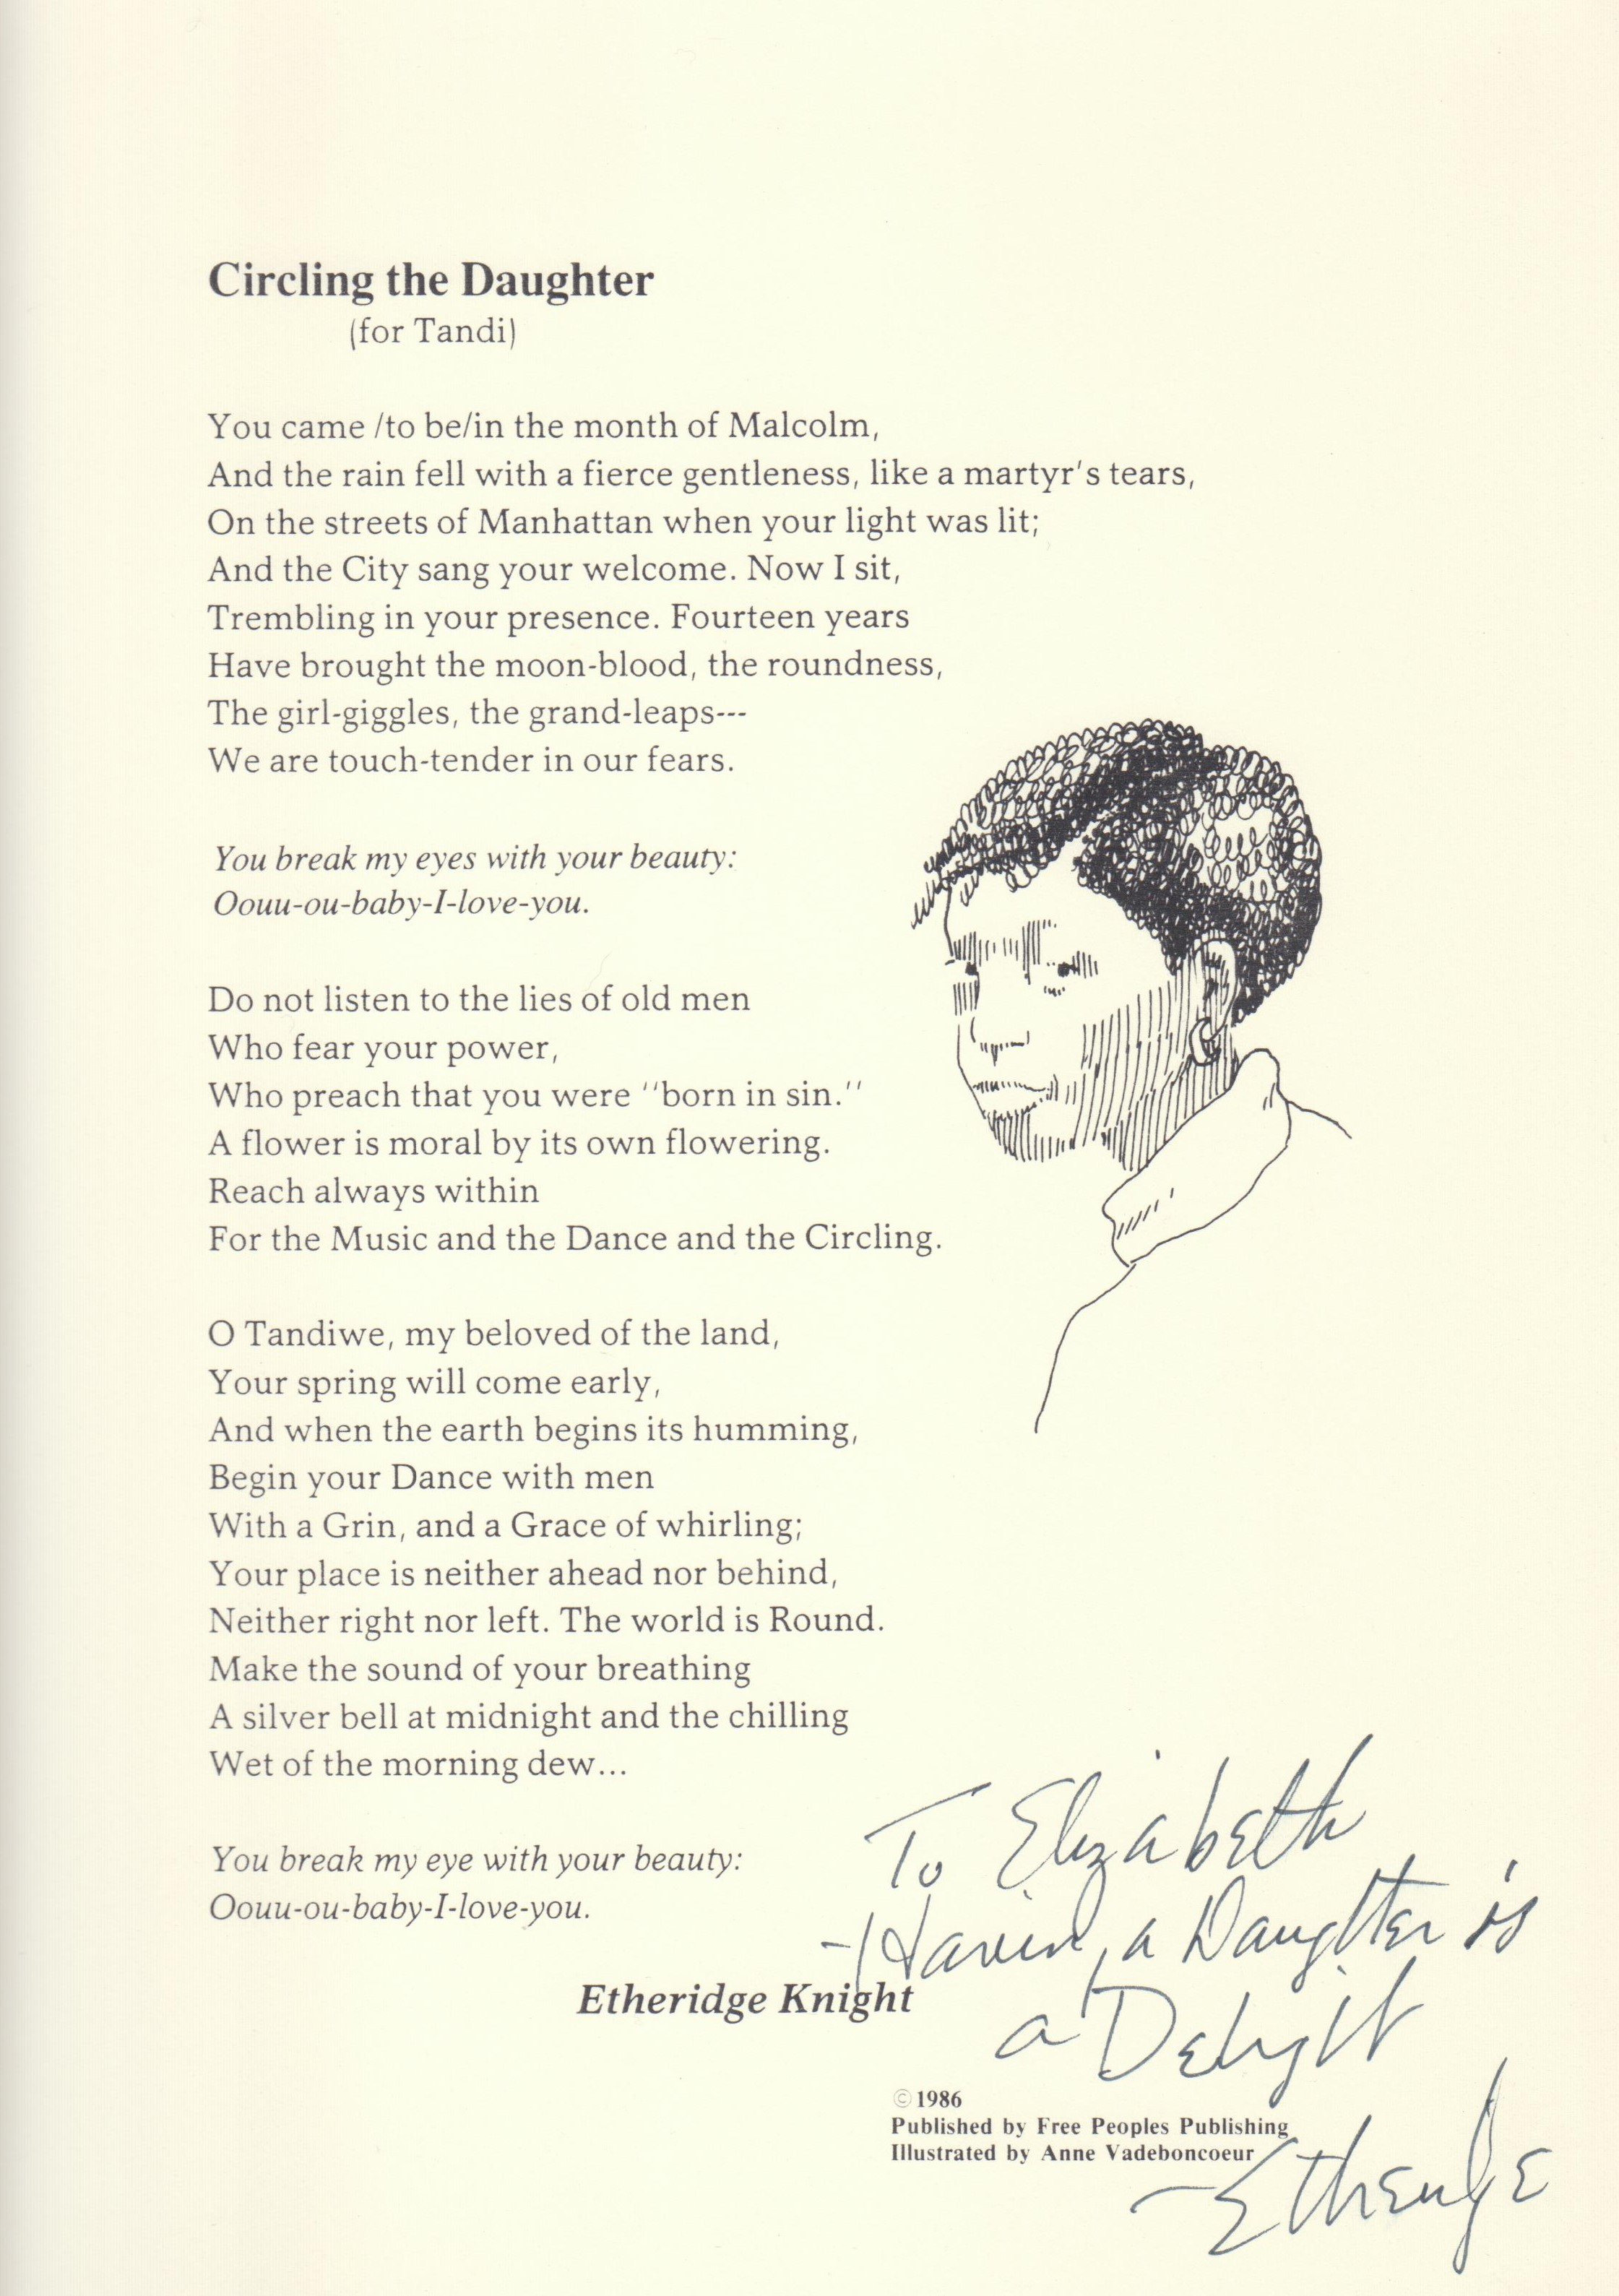 Circling the Daughter
(for Tandi)
You came /to be/in the month of Malcolm,
And the rain fell with a fierce gentleness, like a martyr's tears,
On the streets of Manhattan when your light was lit;
And the City sang your welcome. Now I sit,
Trembling in your presence. Fourteen years
Have brought the moon-blood, the roundness,
The girl-giggles, the grand-leaps---
We are touch-tender in our fears.
You break my eyes with your beauty:
Oouu-ou-baby-I-love-you.
Do not listen to the lies of old men
Who fear your power,
Who preach that you were "born in sin."
A flower is moral by its own flowering.
Reach always within
For the Music and the Dance and the Circling.
O Tandiwe, my beloved of the land,
Your spring will come early,
And when the earth begins its humming,
Begin your Dance with men
With a Grin, and a Grace of whirling;
Your place is neither ahead nor behind,
Neither right nor left. The world is Round.
Make the sound of your breathing
A silver bell at midnight and the chilling
Wet of the morning dew...
You break my eye with your beauty:
Oouu-ou-baby-I-love-you.
Etheridge Knight
To Elizabeth
-Having a Daughter is
a Delight
©1986
Published by Free Peoples Publishing
Illustrated by Anne Vadeboncoeur
-Etheridge